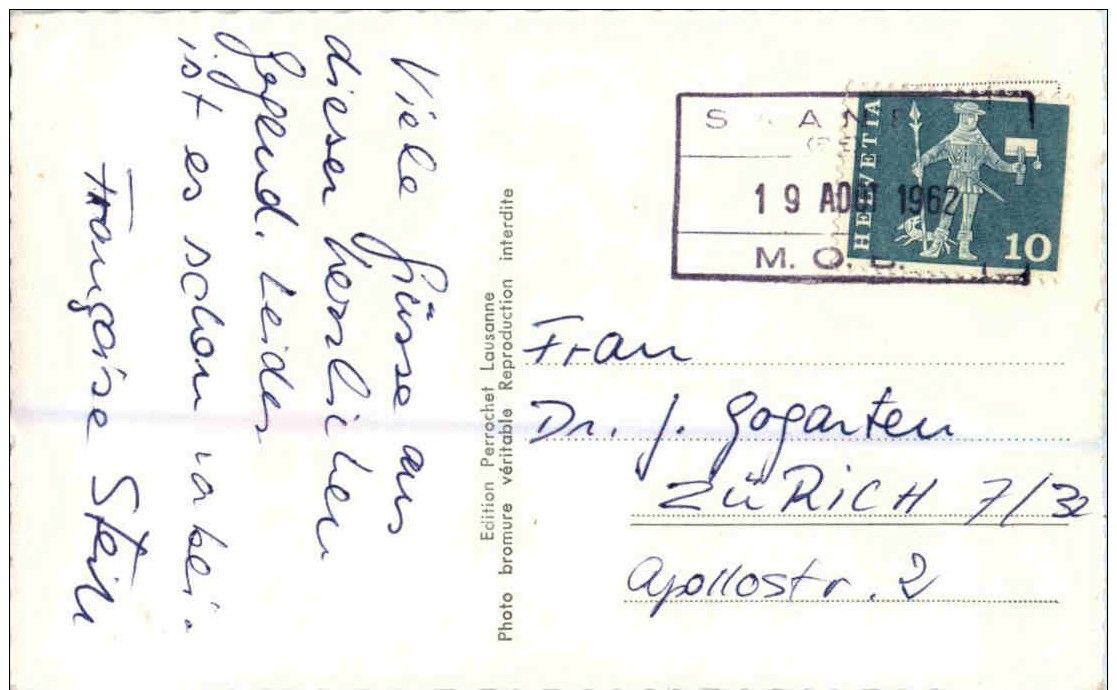 Viele Grüsse aus
dieser herzlichen
Gegend. Leider
ist es schon vorbei.
Françoise
Edition Perrochet Lausanne
Photo bromure véritable Reproduction interdite
19 AOUT 1962
M. O. B.
HELVETIA
10
Frau
Dr. J. Gogarten
ZÜRICH 7/32
Apollostr. 2